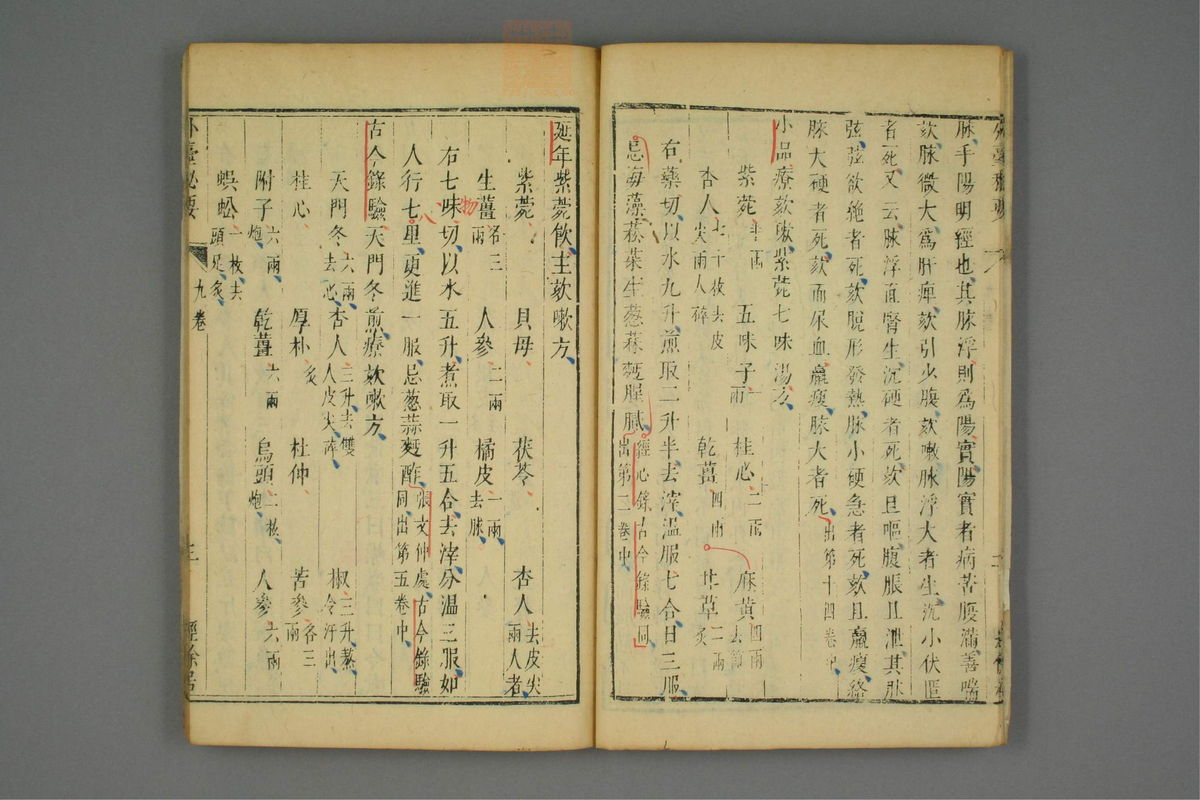 脉手陽明經也其脉浮則爲陽實陽實者病苦腹滿善喘
欬脉微大爲肝痺欬引少腹欬嗽脉浮大者生沉小伏匿
者死又云脉浮直腎生沉硬者死欬且嘔腹脹且泄其脉
弦弦欲絶者死欬脫形發熱脉小硬急者死欬且羸瘦絡
脉大硬者死欬而尿血羸瘦脉大者死出第十四卷中
小品療欬嗽紫菀七味湯方
紫菀半兩 五味子一兩 桂心二兩 麻黃四兩去節
杏人七十枚去皮尖兩人碎 乾薑四兩 甘草二兩炙
右藥切以水九升煎取二升半去滓溫服七合日三服
忌海藻菘菜生葱蒜麪腥膩經心錄古今錄驗同出第二卷中
延年紫菀飲主欬嗽方
紫菀 貝母 茯苓 杏人去皮尖兩人者
生薑各三兩 人參二兩 橘皮一兩去脉
右七味切以水五升煮取一升五合去滓分溫三服如
人行七里更進一服忌葱蒜麪酢張文仲處古今錄驗同出第五卷中
物
八
古今錄驗天門冬煎療欬嗽方
天門冬六兩去心 杏人三升去雙人皮尖碎 椒三升熬令汗出
桂心 厚朴炙 杜仲 苦參各三兩
附子六兩炮 乾薑六兩 烏頭二枚炮 人參六兩
蜈蚣一枚去頭足炙
外臺秘要 九卷 三 經餘居